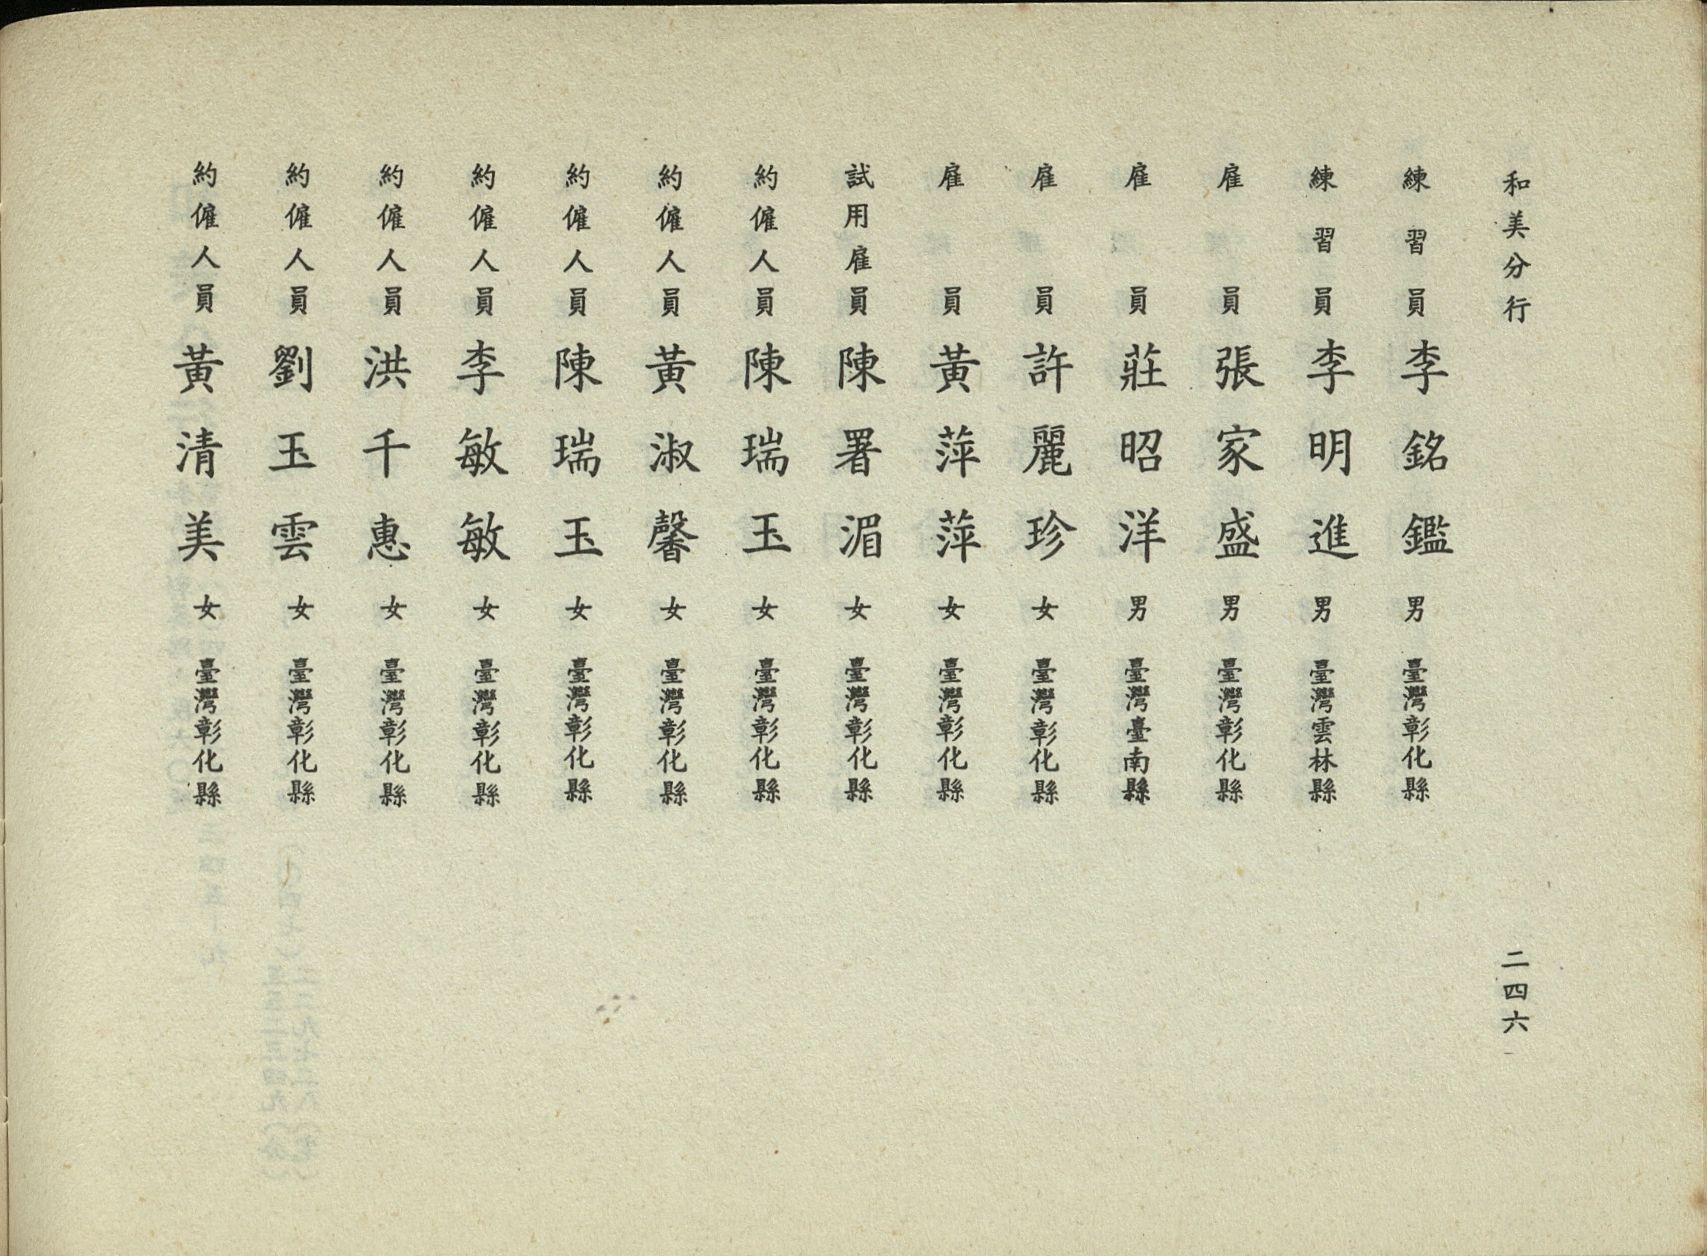 和美分行
二四六
練習員 李銘鑑 男 臺灣彰化縣
練習員 李明進 男 臺灣雲林縣
雇員 張家盛 男 臺灣彰化縣
雇員 莊昭洋 男 臺灣臺南縣
雇員 許麗珍 女 臺灣彰化縣
雇員 黃萍萍 女 臺灣彰化縣
試用雇員 陳署湄 女 臺灣彰化縣
約僱人員 陳瑞玉 女 臺灣彰化縣
約僱人員 黃淑馨 女 臺灣彰化縣
約僱人員 陳瑞玉 女 臺灣彰化縣
約僱人員 李敏敏 女 臺灣彰化縣
約僱人員 洪千惠 女 臺灣彰化縣
約僱人員 劉玉雲 女 臺灣彰化縣
約僱人員 黃清美 女 臺灣彰化縣